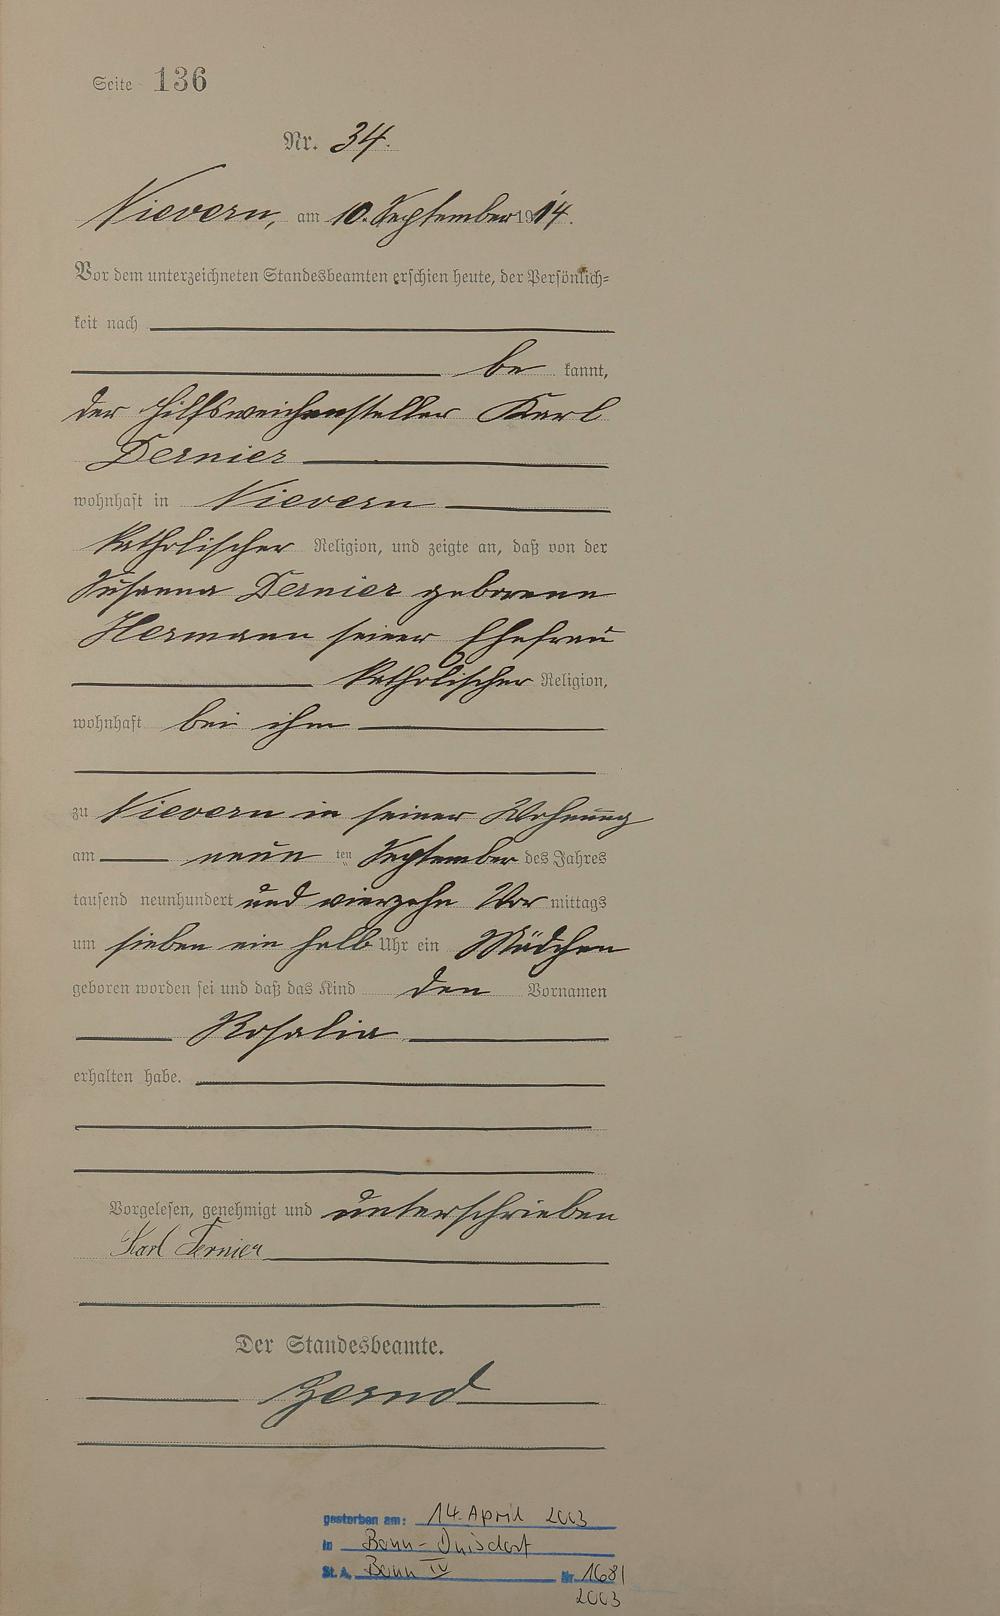 Seite 136
Nr. 34.
Nievern, am 10. September 1914.
Vor dem unterzeichneten Standesbeamten erschien heute, der Persönlich-
keit nach
be kannt,
der Hilfsweichensteller Karl
Dernier
wohnhaft in Nievern
katholischer Religion, und zeigte an, daß von der
Susanna Dernier geborene
Hermann seiner Ehefrau
katholischer Religion,
wohnhaft bei ihm
zu Nievern in seiner Wohnung
am neun ten September des Jahres
tausend neunhundert und vierzehn Vor mittags
um sieben ein halb Uhr ein Mädchen
geboren worden sei und daß das Kind den Vornamen
Rosalia
erhalten habe.
Vorgelesen, genehmigt und unterschrieben
Karl Dernier
Der Standesbeamte.
gestorben am: 14. April 2003
in Bonn-Duisdorf
St. A. Bonn IV Nr. 1681
2003